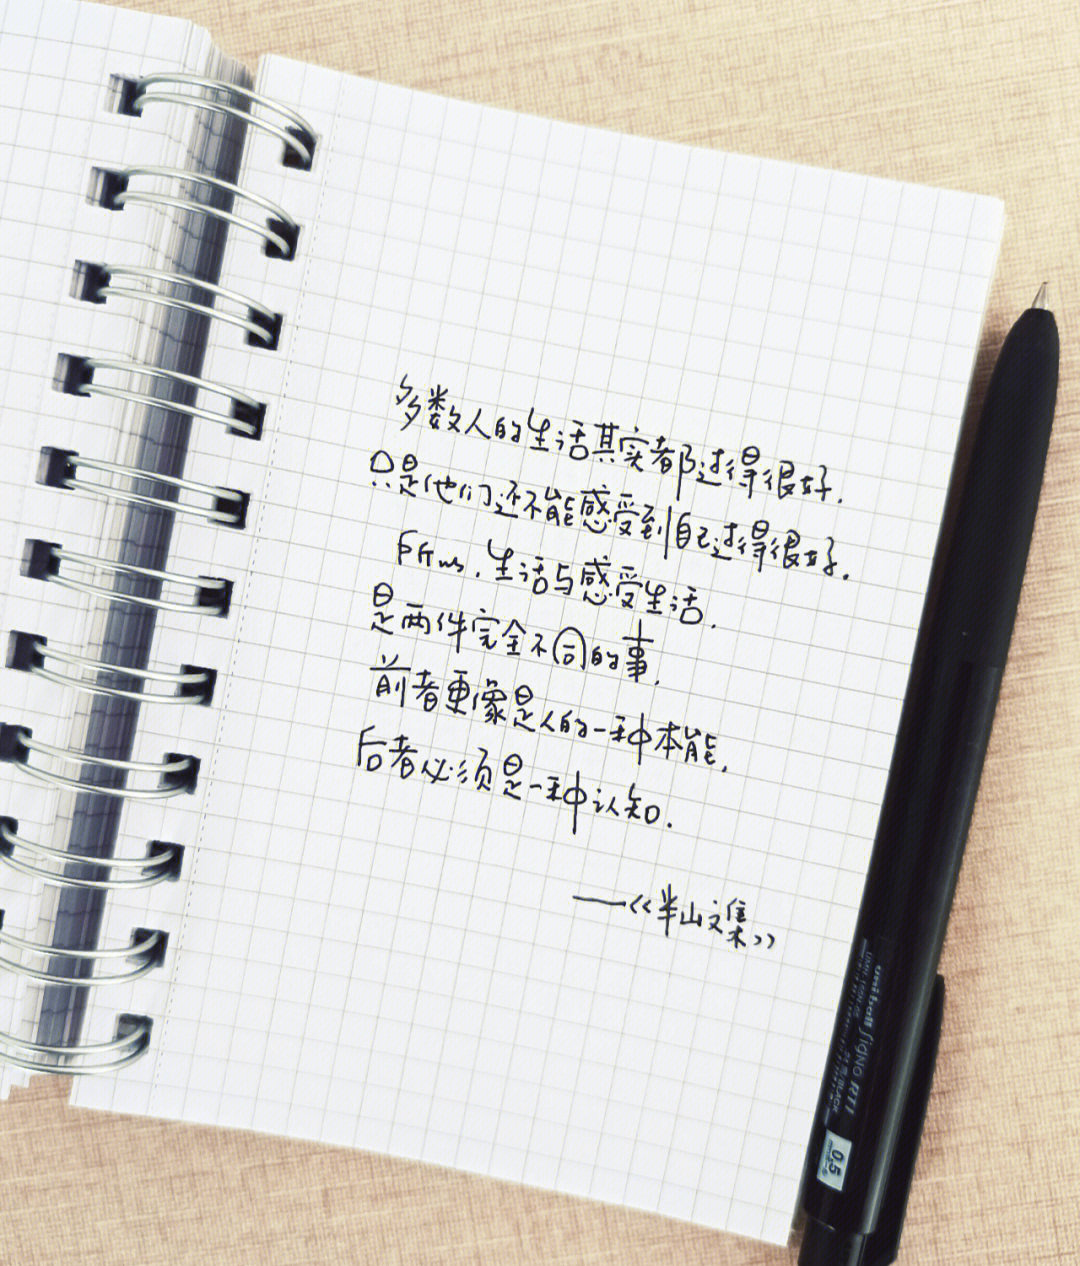 多数人的生活其实都过得很好.
只是他们还不能感受到自己过得很好.
所以,生活与感受生活.
是两件完全不同的事.
前者更像是人的一种本能.
后者必须是一种认知.
——《半山文集》
uni-ball SIGNO RT1
UMN-155N-05
BLACK
0.5